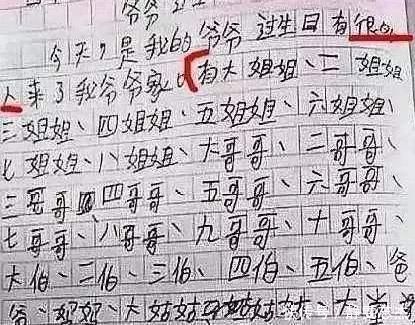 爷爷过生日
今天,是我的爷爷过生日有很多
人来了我爷爷家。有大姐姐、二姐姐
三姐姐、四姐姐、五姐姐、六姐姐、
七姐姐、八姐姐、大哥哥、二哥哥、
三哥哥、四哥哥、五哥哥、六哥哥、
七哥哥、八哥哥、九哥哥、十哥哥、
大伯、二伯、三伯、四伯、五伯、爸
爸、妈妈、大姑姑、姑姑、大